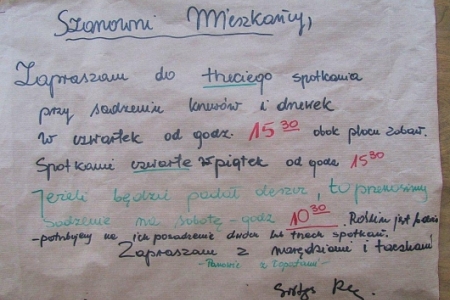 Szanowni Mieszkańcy,
Zapraszam do trzeciego spotkania
przy sadzeniu krzewów i drzewek
w czwartek od godz. 15 30 obok placu zabaw.
Spotkanie czwarte w piątek od godz 15 30
Jeżeli będzie padał deszcz, to przenosimy
sadzenie na sobotę - godz 10 30. Roślin jest
- potrzebujemy na ich posadzenie dwóch lub trzech spotkań.
Zapraszam z narzędziami i taczkami
- Panowie z łopatami -